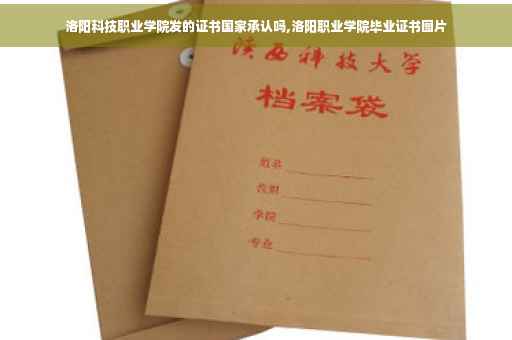 洛阳科技职业学院发的证书国家承认吗,洛阳职业学院毕业证书图片
陕西科技大学
档案袋
姓名
性别
学院
专业